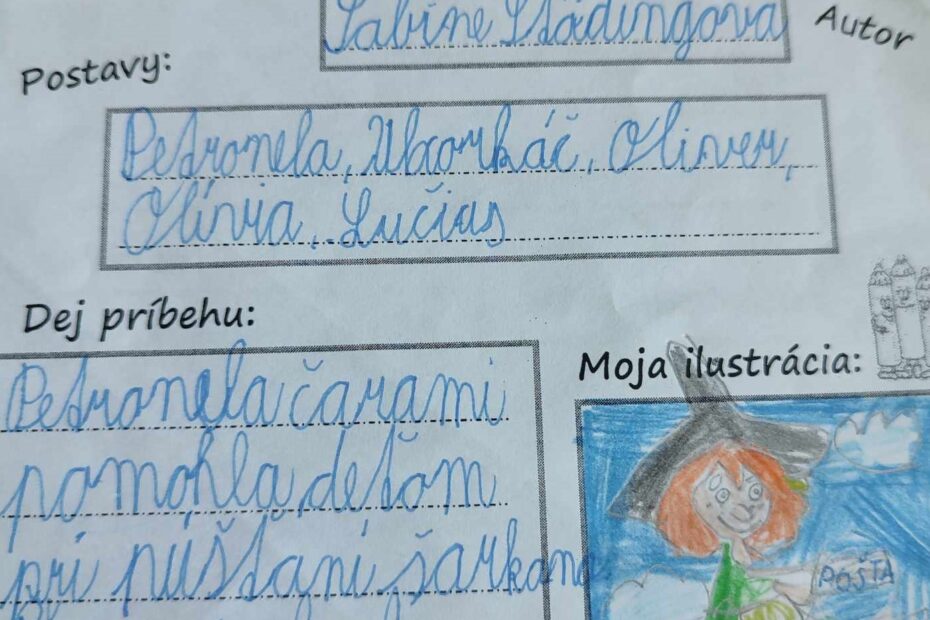 Sabine Städingová
Autor
Postavy:
Petronela, Uborkáč, Oliver,
Olívia, Lučius
Dej príbehu:
Petronela čarami
pomohla deťom
pri púšťaní šarkana
Moja ilustrácia:
POŠTA